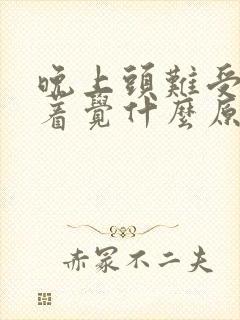 晚上頭難受
着覺什麼原
赤冢不二夫